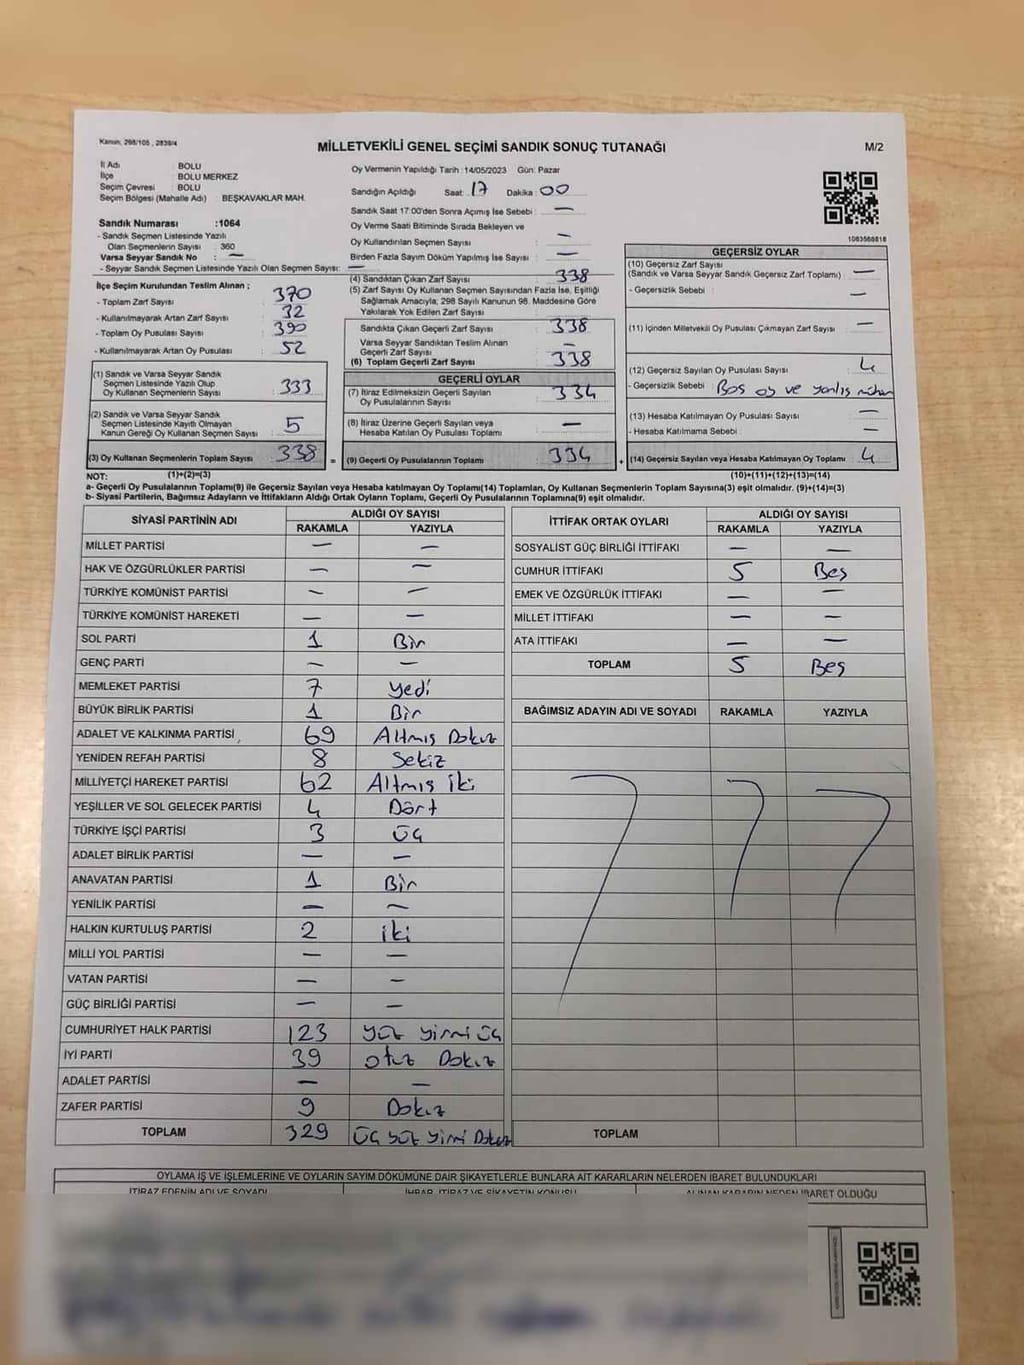 Kanun: 298/105 , 2839/4
MİLLETVEKİLİ GENEL SEÇİMİ SANDIK SONUÇ TUTANAĞI
M/2
İl Adı : BOLU
İlçe : BOLU MERKEZ
Seçim Çevresi : BOLU
Seçim Bölgesi (Mahalle Adı) : BEŞKAVAKLAR MAH.
Sandık Numarası :1064
- Sandık Seçmen Listesinde Yazılı
Olan Seçmenlerin Sayısı : 360
Varsa Seyyar Sandık No : —
- Seyyar Sandık Seçmen Listesinde Yazılı Olan Seçmen Sayısı: —
Oy Vermenin Yapıldığı Tarih :14/05/2023 Gün: Pazar
Sandığın Açıldığı Saat: 17 Dakika : 00
Sandık Saat 17:00'den Sonra Açımış İse Sebebi : —
Oy Verme Saati Bitiminde Sırada Bekleyen ve
Oy Kullandırılan Seçmen Sayısı : —
Birden Fazla Sayım Döküm Yapılmış İse Sayısı : —
1083568818
İlçe Seçim Kurulundan Teslim Alınan ;
- Toplam Zarf Sayısı : 370
- Kullanılmayarak Artan Zarf Sayısı : 32
- Toplam Oy Pusulası Sayısı : 390
- Kullanılmayarak Artan Oy Pusulası : 52
(1) Sandık ve Varsa Seyyar Sandık
Seçmen Listesinde Yazılı Olup
Oy Kullanan Seçmen Sayısı : 333
(2) Sandık ve Varsa Seyyar Sandık
Seçmen Listesinde Kayıtlı Olmayan
Kanun Gereği Oy Kullanan Seçmen Sayısı : 5
(3) Oy Kullanan Seçmenlerin Toplam Sayısı : 338 =
(4) Sandıktan Çıkan Zarf Sayısı : 338
(5) Zarf Sayısı Oy Kullanan Seçmen Sayısından Fazla İse, Eşitliği
Sağlamak Amacıyla; 298 Sayılı Kanunun 98. Maddesine Göre
Yakılarak Yok Edilen Zarf Sayısı :
Sandıkta Çıkan Geçerli Zarf Sayısı : 338
Varsa Seyyar Sandıktan Teslim Alınan
Geçerli Zarf Sayısı : —
(6) Toplam Geçerli Zarf Sayısı : 338
GEÇERLİ OYLAR
(7) İtiraz Edilmeksizin Geçerli Sayılan
Oy Pusulalarının Sayısı : 334
(8) İtiraz Üzerine Geçerli Sayılan veya
Hesaba Katılan Oy Pusulası Toplamı : —
(9) Geçerli Oy Pusulalarının Toplamı : 334 +
GEÇERSİZ OYLAR
(10) Geçersiz Zarf Sayısı
(Sandık ve Varsa Seyyar Sandık Geçersiz Zarf Toplamı) : —
- Geçersizlik Sebebi : —
(11) İçinden Milletvekili Oy Pusulası Çıkmayan Zarf Sayısı : —
(12) Geçersiz Sayılan Oy Pusulası Sayısı : 4
- Geçersizlik Sebebi : Boş oy ve yanlış mühür
(13) Hesaba Katılmayan Oy Pusulası Sayısı : —
- Hesaba Katılmama Sebebi : —
(14) Geçersiz Sayılan veya Hesaba Katılmayan Oy Toplamı : 4
NOT: (1)+(2)=(3) (10)+(11)+(12)+(13)=(14)
a- Geçerli Oy Pusulalarının Toplamı(9) ile Geçersiz Sayılan veya Hesaba katılmayan Oy Toplamı(14) Toplamları, Oy Kullanan Seçmenlerin Toplam Sayısına(3) eşit olmalıdır. (9)+(14)=(3)
b- Siyasi Partilerin, Bağımsız Adayların ve İttifakların Aldığı Ortak Oyların Toplamı, Geçerli Oy Pusulalarının Toplamına(9) eşit olmalıdır.
SİYASİ PARTİNİN ADI ALDIĞI OY SAYISI
RAKAMLA YAZIYLA
MİLLET PARTİSİ — —
HAK VE ÖZGÜRLÜKLER PARTİSİ — —
TÜRKİYE KOMÜNİST PARTİSİ — —
TÜRKİYE KOMÜNİST HAREKETİ — —
SOL PARTİ 1 Bir
GENÇ PARTİ — —
MEMLEKET PARTİSİ 7 yedi
BÜYÜK BİRLİK PARTİSİ 1 Bir
ADALET VE KALKINMA PARTİSİ 69 Altmış Dokuz
YENİDEN REFAH PARTİSİ 8 Sekiz
MİLLİYETÇİ HAREKET PARTİSİ 62 Altmış iki
YEŞİLLER VE SOL GELECEK PARTİSİ 4 Dört
TÜRKİYE İŞÇİ PARTİSİ 3 üç
ADALET BİRLİK PARTİSİ — —
ANAVATAN PARTİSİ 1 Bir
YENİLİK PARTİSİ — —
HALKIN KURTULUŞ PARTİSİ 2 iki
MİLLİ YOL PARTİSİ — —
VATAN PARTİSİ — —
GÜÇ BİRLİĞİ PARTİSİ — —
CUMHURİYET HALK PARTİSİ 123 yüz yirmi üç
İYİ PARTİ 39 otuz Dokuz
ADALET PARTİSİ — —
ZAFER PARTİSİ 9 Dokuz
TOPLAM 329 üç yüz yirmi Dokuz
İTTİFAK ORTAK OYLARI ALDIĞI OY SAYISI
RAKAMLA YAZIYLA
SOSYALİST GÜÇ BİRLİĞİ İTTİFAKI — —
CUMHUR İTTİFAKI 5 Beş
EMEK VE ÖZGÜRLÜK İTTİFAKI — —
MİLLET İTTİFAKI — —
ATA İTTİFAKI — —
TOPLAM 5 Beş
BAĞIMSIZ ADAYIN ADI VE SOYADI RAKAMLA YAZIYLA
TOPLAM
OYLAMA İŞ VE İŞLEMLERİNE VE OYLARIN SAYIM DÖKÜMÜNE DAİR ŞİKAYETLERLE BUNLARA AİT KARARLARIN NELERDEN İBARET BULUNDUKLARI
İTİRAZ EDENİN ADI VE SOYADI İHBAR, İTİRAZ VE ŞİKAYETİN KONUSU ALINAN KARARIN NEDEN İBARET OLDUĞU